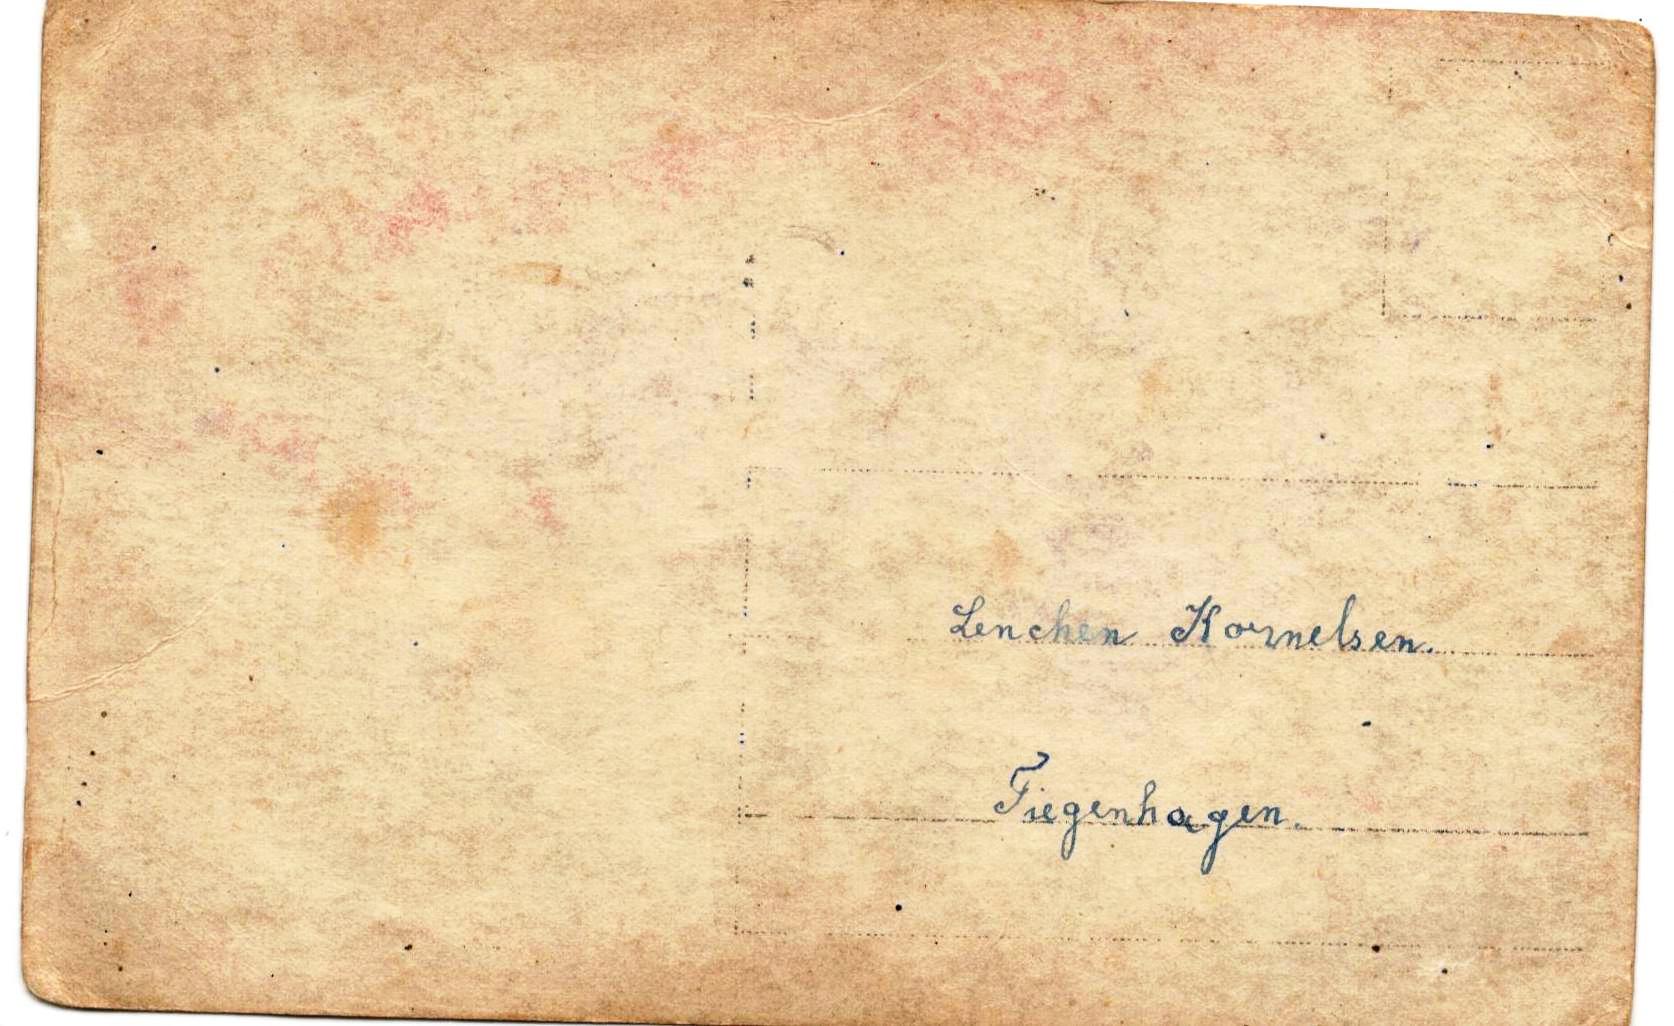 Lenchen Kornelsen.
Tiegenhagen.